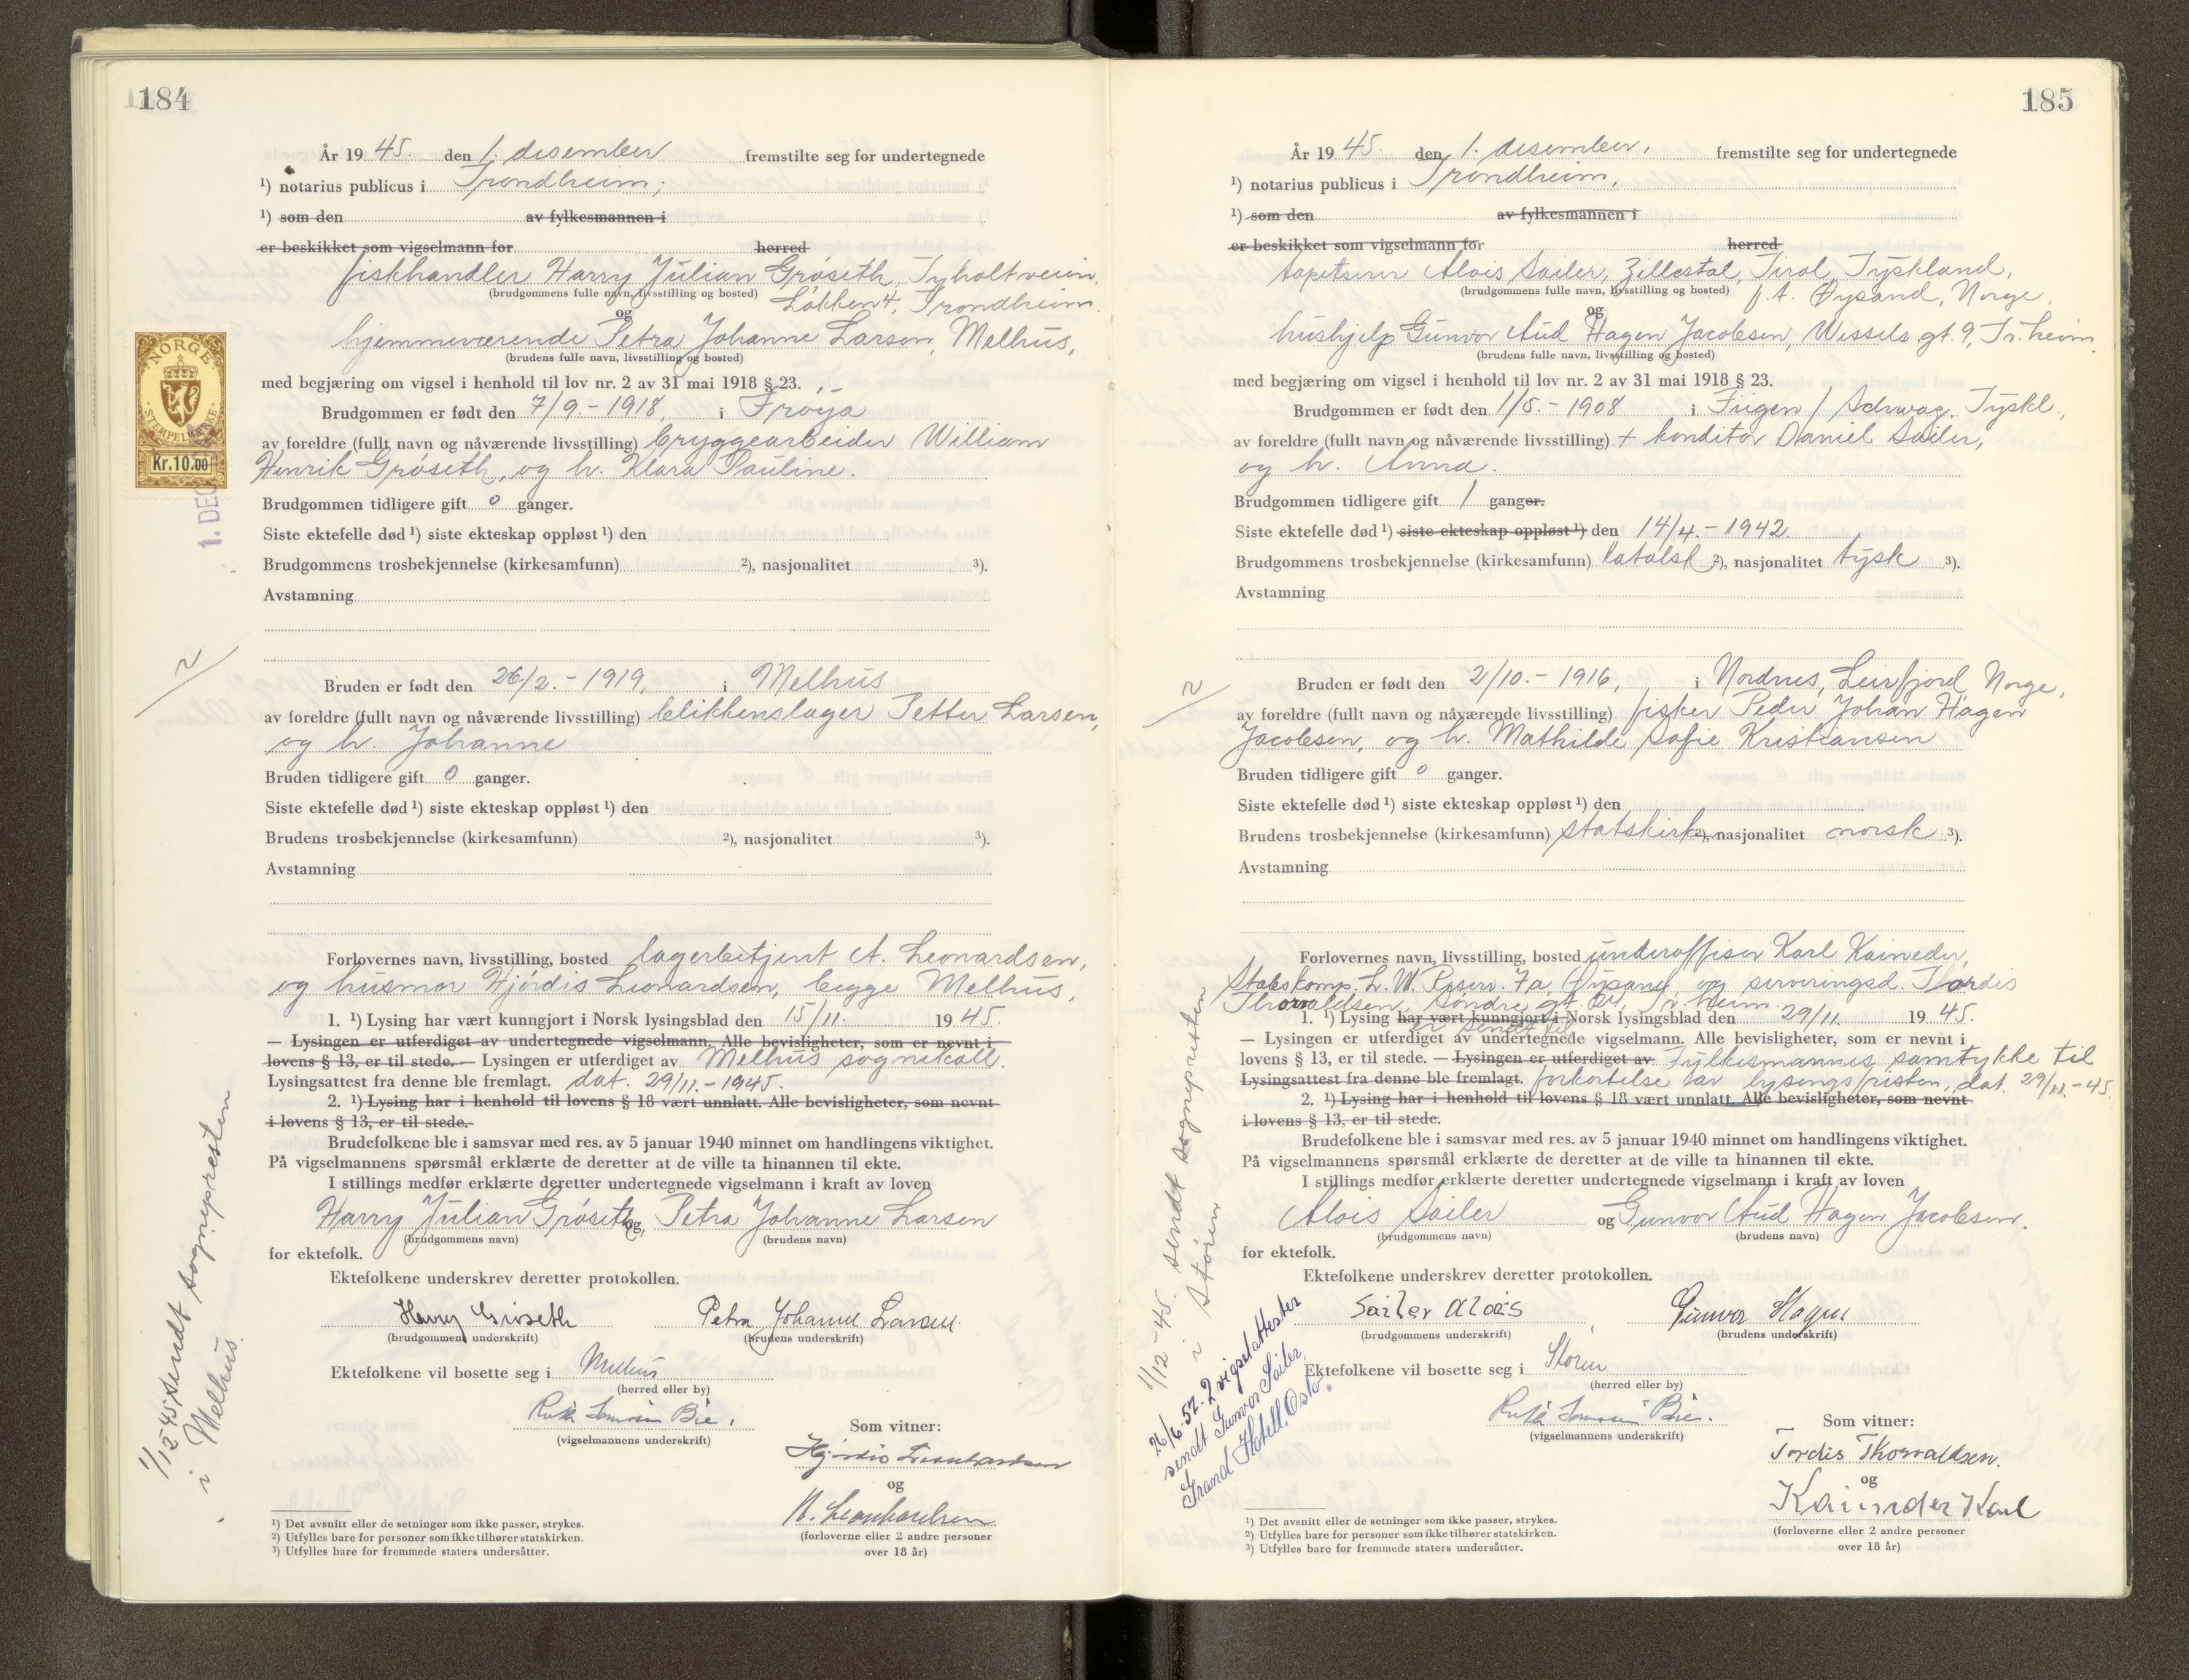 184
År 19 45. den 1. desember fremstilte seg for undertegnede
¹) notarius publicus i Trondheim,
¹) som den av fylkesmannen i
er beskikket som vigselmann for herred
fiskhandler Harry Julian Grøseth, Tyholtveien,
(brudgommens fulle navn, livsstilling og bosted) Løkken 4, Trondheim.
og
hjemmeværende Petra Johanne Larsen, Melhus,
(brudens fulle navn, livsstilling og bosted)
med begjæring om vigsel i henhold til lov nr. 2 av 31 mai 1918 § 23.
Brudgommen er født den 7/9. - 1918, i Frøya
av foreldre (fullt navn og nåværende livsstilling) bryggearbeider William
Henrik Grøseth, og h. Klara Pauline.
Brudgommen tidligere gift 0 ganger.
Siste ektefelle død ¹) siste ekteskap oppløst ¹) den
Brudgommens trosbekjennelse (kirkesamfunn) ²), nasjonalitet ³).
Avstamning
Bruden er født den 26/2. - 1919, i Melhus
av foreldre (fullt navn og nåværende livsstilling) blikkenslager Petter Larsen,
og h. Johanne
Bruden tidligere gift 0 ganger.
Siste ektefelle død ¹) siste ekteskap oppløst ¹) den
Brudens trosbekjennelse (kirkesamfunn) ²), nasjonalitet ³).
Avstamning
Forlovernes navn, livsstilling, bosted lagerbetjent A. Leonardsen,
og husmor Hjørdis Leonardsen, begge Melhus,
1. ¹) Lysing har vært kunngjort i Norsk lysingsblad den 15/11. 19 45.
— Lysingen er utferdiget av undertegnede vigselmann. Alle bevisligheter, som er nevnt i
lovens § 13, er til stede. — Lysingen er utferdiget av Melhus sognekall.
Lysingsattest fra denne ble fremlagt. dat. 29/11. - 1945.
2. ¹) Lysing har i henhold til lovens § 18 vært unnlatt. Alle bevisligheter, som nevnt
i lovens § 13, er til stede.
Brudefolkene ble i samsvar med res. av 5 januar 1940 minnet om handlingens viktighet.
På vigselmannens spørsmål erklærte de deretter at de ville ta hinannen til ekte.
I stillings medfør erklærte deretter undertegnede vigselmann i kraft av loven
Harry Julian Grøseth og Petra Johanne Larsen
(brudgommens navn) (brudens navn)
for ektefolk.
Ektefolkene underskrev deretter protokollen.
Harry Grøseth Petra Johanne Larsen.
(brudgommens underskrift) (brudens underskrift)
Ektefolkene vil bosette seg i Melhus
(herred eller by)
Ruth Bie.
(vigselmannens underskrift)
Som vitner:
Hjørdis Leonhardsen
og
A. Leonhardsen
(forloverne eller 2 andre personer
over 18 år)
¹) Det avsnitt eller de setninger som ikke passer, strykes.
²) Utfylles bare for personer som ikke tilhører statskirken.
³) Utfylles bare for fremmede staters undersåtter.
NORGE
STEMPELMERKE
Kr.10.00
1. DEC
2
1/12-45 sendt sognepresten
i Melhus.
185
År 19 45. den 1. desember, fremstilte seg for undertegnede
¹) notarius publicus i Trondheim,
¹) som den av fylkesmannen i
er beskikket som vigselmann for herred
tapetserer Alois Sailer, Zillestal, Tirol, Tyskland,
(brudgommens fulle navn, livsstilling og bosted) f.t. Øysand, Norge,
og
hushjelp Gunvor Aud Hagen Jacobsen, Wessels gt. 9, Tr.heim,
(brudens fulle navn, livsstilling og bosted)
med begjæring om vigsel i henhold til lov nr. 2 av 31 mai 1918 § 23.
Brudgommen er født den 1/5. - 1908 i Fügen / Schwaz, Tyskl.,
av foreldre (fullt navn og nåværende livsstilling) + konditor Daniel Sailer,
og h. Anna.
Brudgommen tidligere gift 1 ganger.
Siste ektefelle død ¹) siste ekteskap oppløst ¹) den 14/4. - 1942.
Brudgommens trosbekjennelse (kirkesamfunn) katolsk ²), nasjonalitet tysk ³).
Avstamning
Bruden er født den 2/10. - 1916, i Nordnes, Leirfjord, Norge,
av foreldre (fullt navn og nåværende livsstilling) fisker Peder Johan Hagen
Jacobsen, og h. Mathilde Sofie Kristiansen
Bruden tidligere gift 0 ganger.
Siste ektefelle død ¹) siste ekteskap oppløst ¹) den
Brudens trosbekjennelse (kirkesamfunn) statskirk ²), nasjonalitet norsk ³).
Avstamning
Forlovernes navn, livsstilling, bosted underoffiser Karl Kaineder,
Stabskomp. L.W. Reserv. Fa, Øysand, og serveringsd. Tordis
Thorvaldsen, Søndre gt. Tr.heim
1. ¹) Lysing har vært kunngjort i Norsk lysingsblad den 29/11. 19 45.
er sendt til
— Lysingen er utferdiget av undertegnede vigselmann. Alle bevisligheter, som er nevnt i
lovens § 13, er til stede. — Lysingen er utferdiget av Fylkesmannens samtykke til
Lysingsattest fra denne ble fremlagt. forkortelse av lysingsfristen, dat. 29/11.-45.
2. ¹) Lysing har i henhold til lovens § 18 vært unnlatt. Alle bevisligheter, som nevnt
i lovens § 13, er til stede.
Brudefolkene ble i samsvar med res. av 5 januar 1940 minnet om handlingens viktighet.
På vigselmannens spørsmål erklærte de deretter at de ville ta hinannen til ekte.
I stillings medfør erklærte deretter undertegnede vigselmann i kraft av loven
Alois Sailer og Gunvor Aud Hagen Jacobsen.
(brudgommens navn) (brudens navn)
for ektefolk.
Ektefolkene underskrev deretter protokollen.
Sailer Alois Gunvor Hagen
(brudgommens underskrift) (brudens underskrift)
Ektefolkene vil bosette seg i Støren
(herred eller by)
Ruth Bie.
(vigselmannens underskrift)
Som vitner:
Tordis Thorvaldsen.
og
Kaineder Karl
(forloverne eller 2 andre personer
over 18 år)
¹) Det avsnitt eller de setninger som ikke passer, strykes.
²) Utfylles bare for personer som ikke tilhører statskirken.
³) Utfylles bare for fremmede staters undersåtter.
2
1/12-45. sendt sognepresten
i Støren
26/6-52. 2 vigselattester
sendt Gunvor Sailer,
Grand Hotell, Oslo.